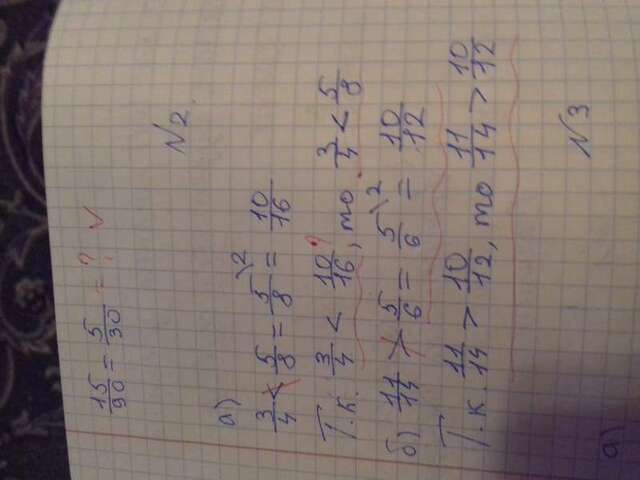 15/90 = 5/30 = ? ✓
№2
а)
3/4 < 5/8 = 5/8 \2 = 10/16
Т.к. 3/4 < 10/16 ?, то 3/4 < 5/8
б) 11/14 > 5/6 = 5/6 \2 = 10/12
Т.к. 11/14 > 10/12, то 11/14 > 10/12
№3
а)